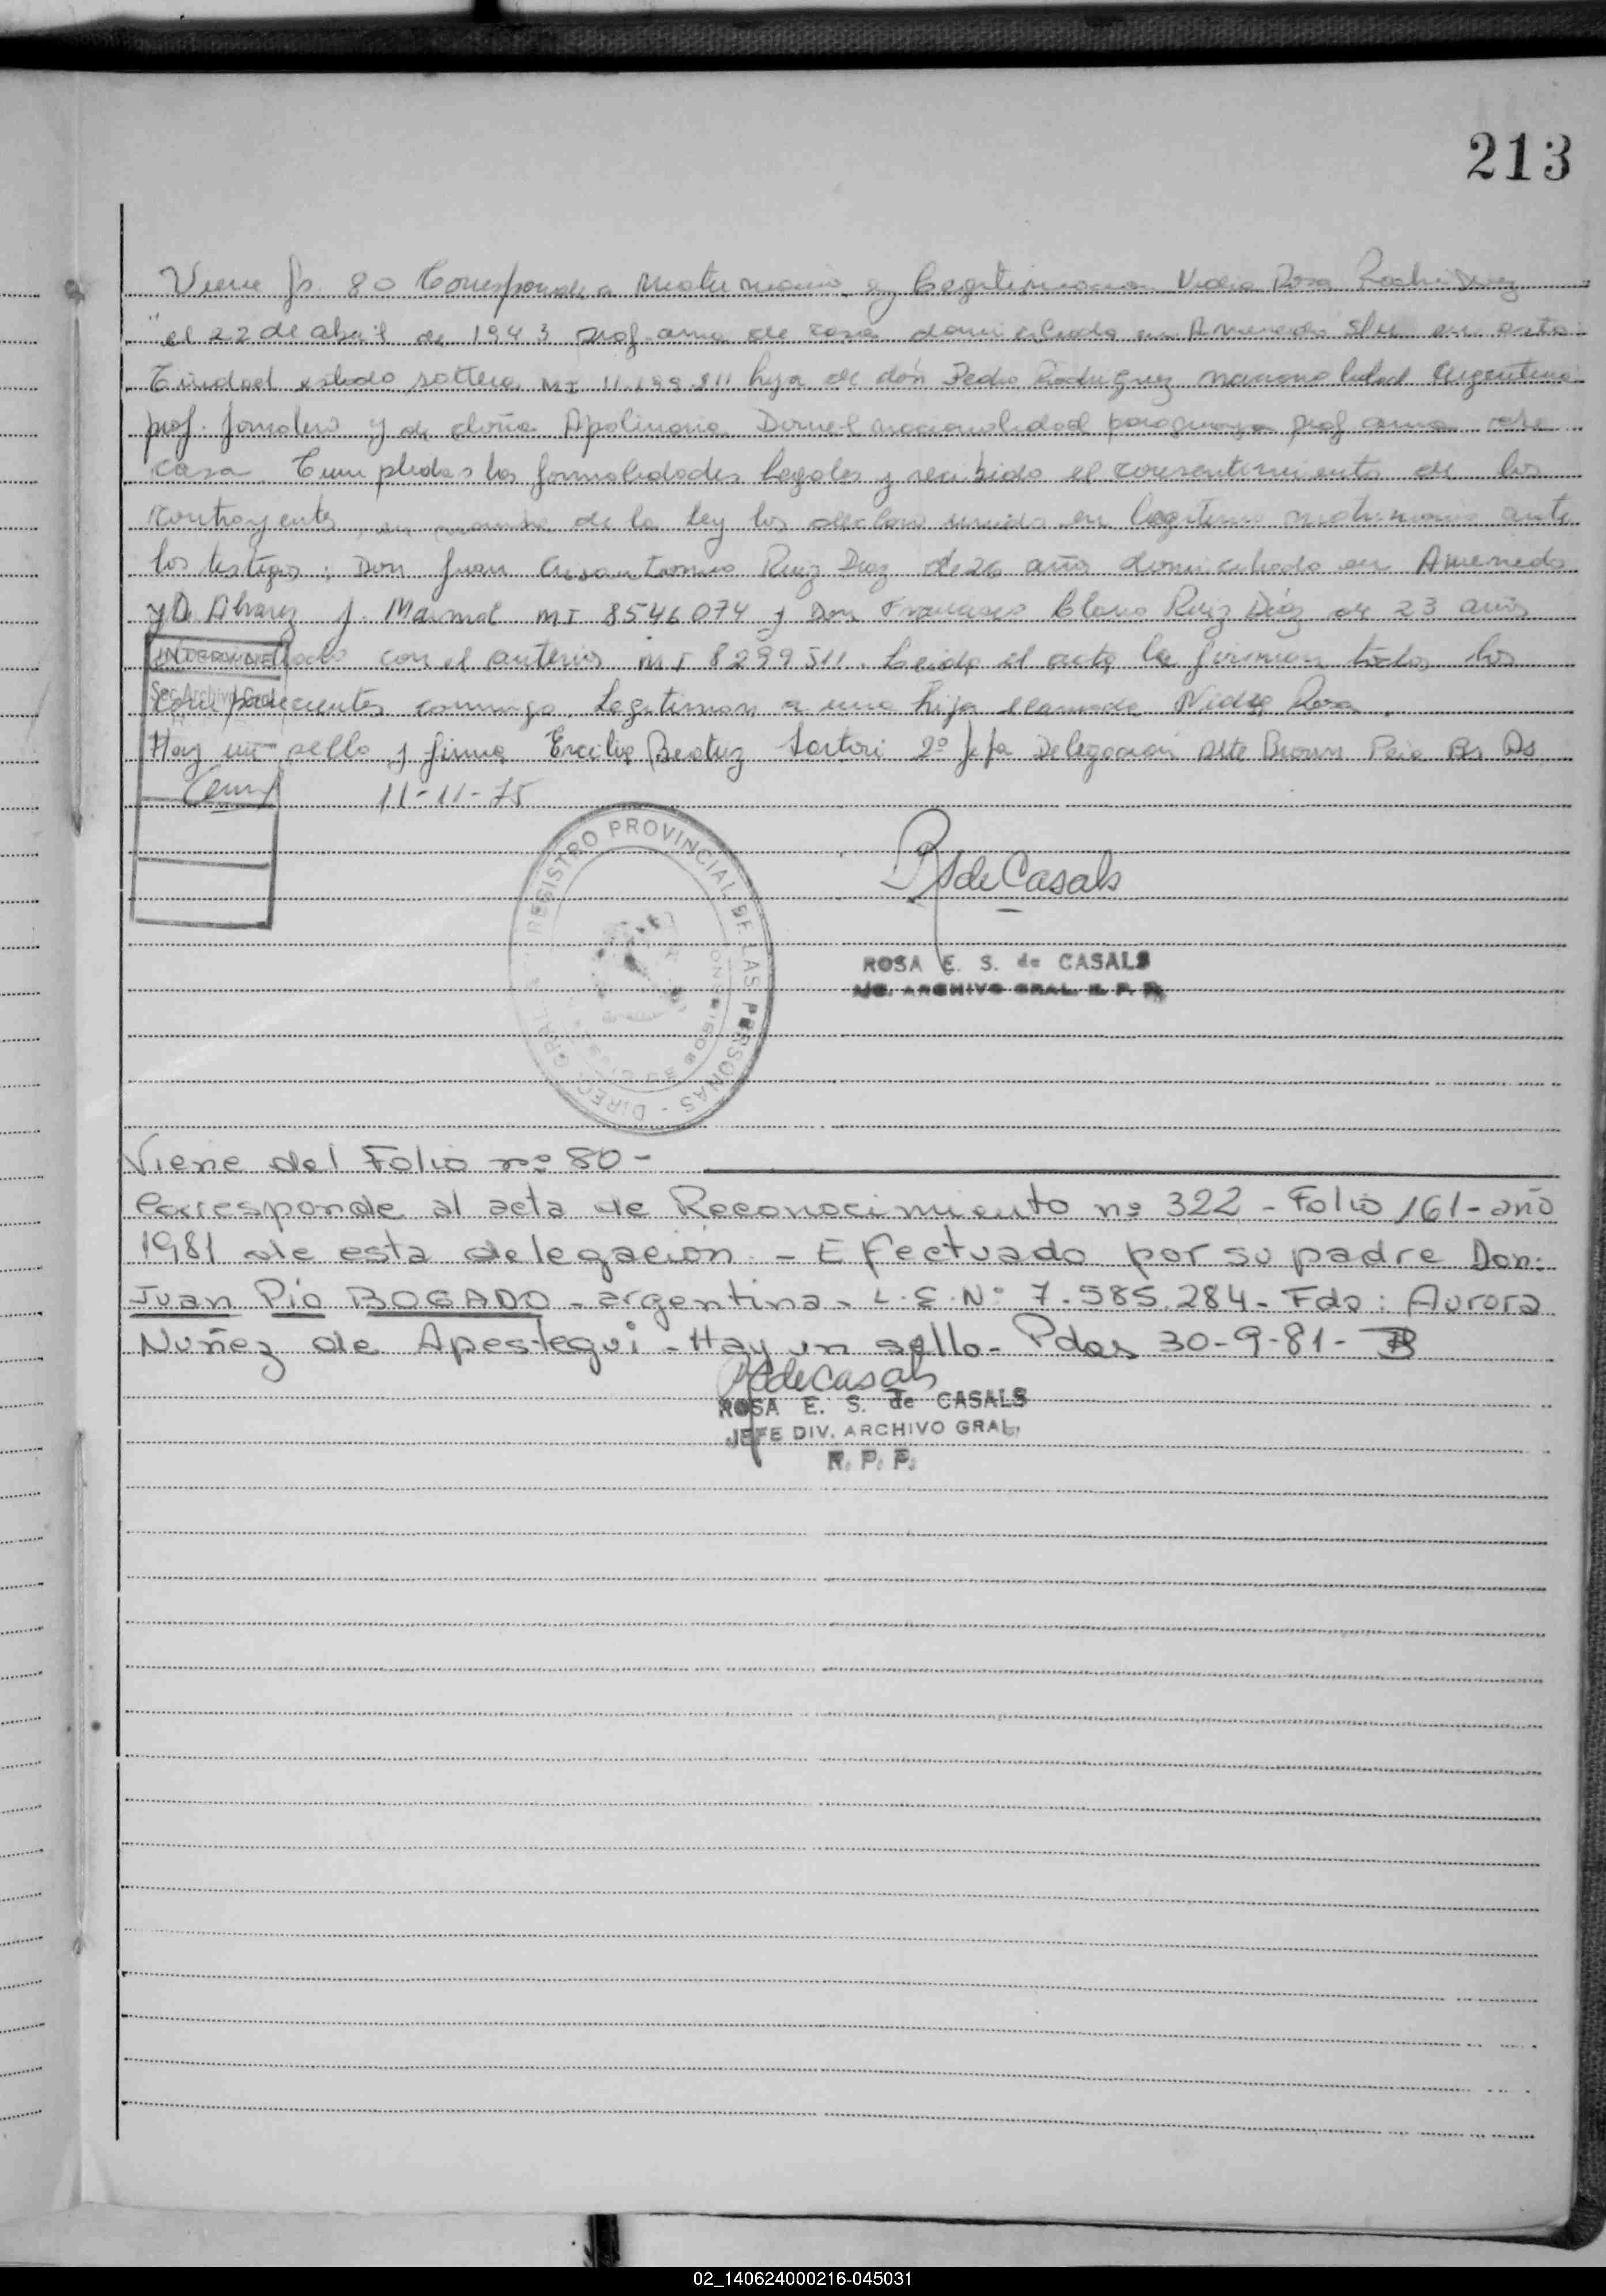 213
Viene fs. 80 Corresponde a Matrimonio y Legitimacion Nidia Rosa Rodriguez
el 22 de abril de 1943 prof. ama de casa domiciliada en Amenedo s/n en esta
Ciudad estado soltera MI 11.199.811 hija de don Pedro Rodriguez nacionalidad Argentina
prof. jornalero y de doña Apolinaria nacionalidad paraguaya prof ama de
casa. Cumplidas las formalidades legales y recibido el consentimiento de los
contrayentes en nombre de la ley los declaro unidos en legitimo matrimonio ante
los testigos: Don Juan Ruiz Diaz de 26 años domiciliado en Amenedo
y D. Alvarez J. Marmol MI 8546074 y Don Francisco Ruiz Diaz de 23 años
con el anterior MI 8299511. Leida el acta la firman todos los
comparecientes conmigo. Legitiman a una hija llamada Nidia Rosa.
Hay un sello y firma Ercilia Beatriz Sartori 2º Jefa Delegacion Alte Brown Pcia Bs As
11-11-75
INTERVINE
Sec. Archivo Gral.
REGISTRO PROVINCIAL DE LAS PERSONAS - DIREC. GRAL.
RS de Casals
ROSA E. S. de CASALS
ARCHIVO GRAL. R. P. P.
Viene del Folio nº 80-
Corresponde al acta de Reconocimiento nº 322 - Folio 161 - año
1981 de esta delegación. - Efectuado por su padre Don:
Juan Pío BOGADO - argentina - L.E. Nº 7.585.284 - Fdo: Aurora
Nuñez de Apestegui - Hay un sello - Pdas 30-9-81 -
RS de Casals
ROSA E. S. de CASALS
JEFE DIV. ARCHIVO GRAL.
R. P. P.
02_140624000216-045031